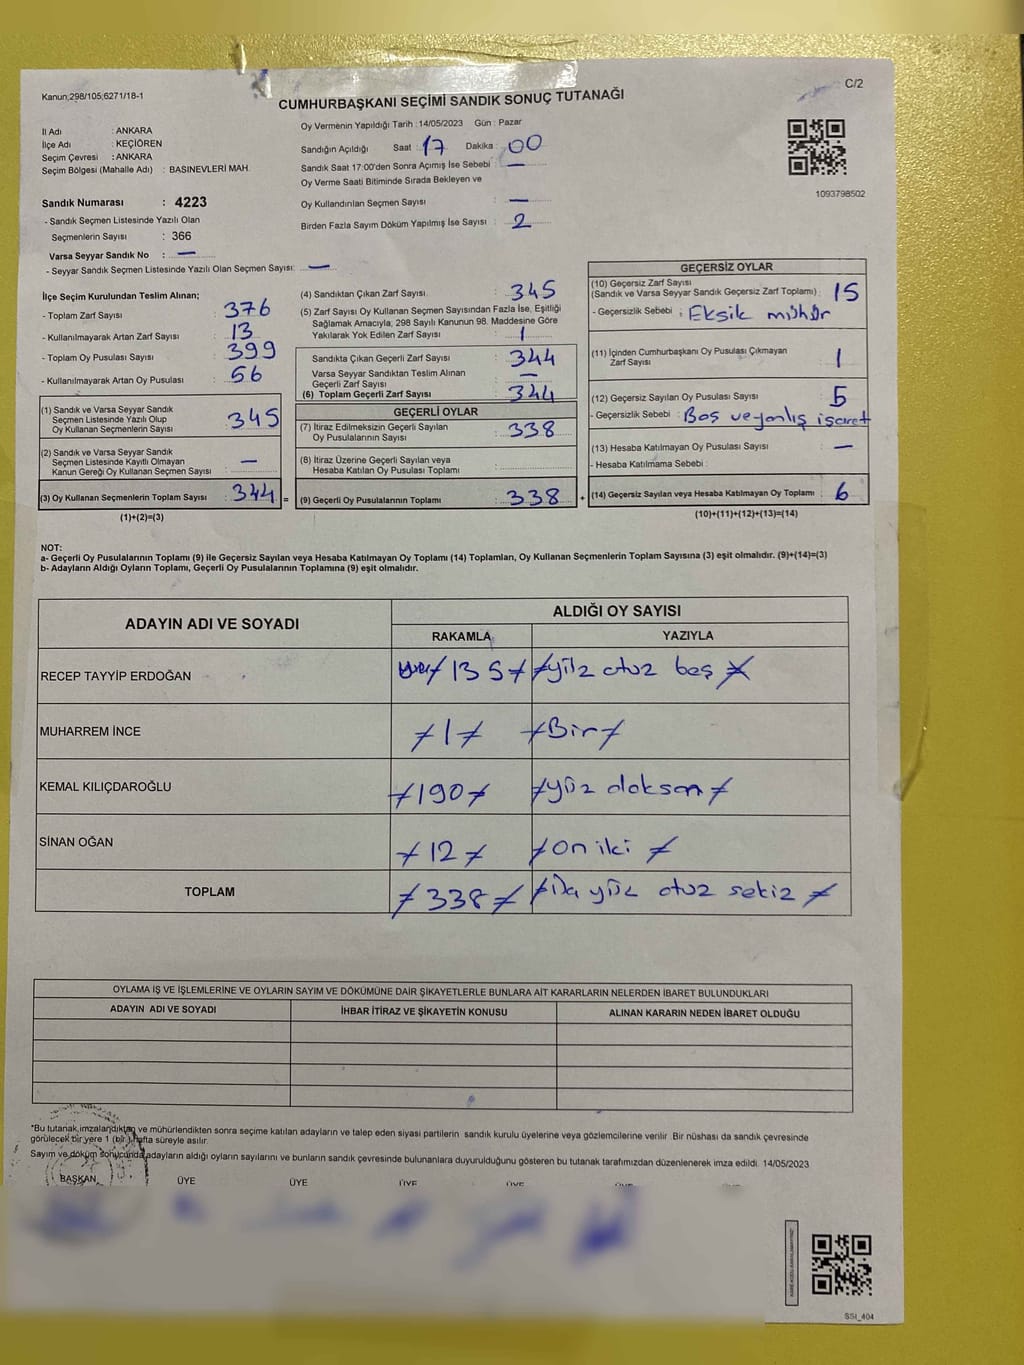 Kanun;298/105;6271/18-1
C/2
CUMHURBAŞKANI SEÇİMİ SANDIK SONUÇ TUTANAĞI
İl Adı : ANKARA
İlçe Adı : KEÇİÖREN
Seçim Çevresi : ANKARA
Seçim Bölgesi (Mahalle Adı) : BASINEVLERİ MAH.
Oy Vermenin Yapıldığı Tarih : 14/05/2023 Gün : Pazar
Sandığın Açıldığı Saat : 17 Dakika : 00
Sandık Saat 17:00'den Sonra Açımış İse Sebebi : —
Oy Verme Saati Bitiminde Sırada Bekleyen ve
Oy Kullandırılan Seçmen Sayısı : —
Birden Fazla Sayım Döküm Yapılmış İse Sayısı : 2
1093798502
Sandık Numarası : 4223
- Sandık Seçmen Listesinde Yazılı Olan
Seçmenlerin Sayısı : 366
Varsa Seyyar Sandık No : —
- Seyyar Sandık Seçmen Listesinde Yazılı Olan Seçmen Sayısı: —
İlçe Seçim Kurulundan Teslim Alınan;
- Toplam Zarf Sayısı : 376
- Kullanılmayarak Artan Zarf Sayısı : 13
- Toplam Oy Pusulası Sayısı : 399
- Kullanılmayarak Artan Oy Pusulası : 56
(1) Sandık ve Varsa Seyyar Sandık
Seçmen Listesinde Yazılı Olup
Oy Kullanan Seçmenlerin Sayısı : 345
(2) Sandık ve Varsa Seyyar Sandık
Seçmen Listesinde Kayıtlı Olmayan
Kanun Gereği Oy Kullanan Seçmen Sayısı : —
(3) Oy Kullanan Seçmenlerin Toplam Sayısı : 344 =
(1)+(2)=(3)
(4) Sandıktan Çıkan Zarf Sayısı : 345
(5) Zarf Sayısı Oy Kullanan Seçmen Sayısından Fazla İse, Eşitliği
Sağlamak Amacıyla, 298 Sayılı Kanunun 98. Maddesine Göre
Yakılarak Yok Edilen Zarf Sayısı : 1
Sandıkta Çıkan Geçerli Zarf Sayısı : 344
Varsa Seyyar Sandıktan Teslim Alınan
Geçerli Zarf Sayısı : —
(6) Toplam Geçerli Zarf Sayısı : 344
GEÇERLİ OYLAR
(7) İtiraz Edilmeksizin Geçerli Sayılan
Oy Pusulalarının Sayısı : 338
(8) İtiraz Üzerine Geçerli Sayılan veya
Hesaba Katılan Oy Pusulası Toplamı :
(9) Geçerli Oy Pusulalarının Toplamı : 338 +
GEÇERSİZ OYLAR
(10) Geçersiz Zarf Sayısı
(Sandık ve Varsa Seyyar Sandık Geçersiz Zarf Toplamı) : 15
- Geçersizlik Sebebi : Eksik mühür
(11) İçinden Cumhurbaşkanı Oy Pusulası Çıkmayan
Zarf Sayısı : 1
(12) Geçersiz Sayılan Oy Pusulası Sayısı : 5
- Geçersizlik Sebebi : Boş ve yanlış işaret
(13) Hesaba Katılmayan Oy Pusulası Sayısı : —
- Hesaba Katılmama Sebebi :
(14) Geçersiz Sayılan veya Hesaba Katılmayan Oy Toplamı : 6
(10)+(11)+(12)+(13)=(14)
NOT:
a- Geçerli Oy Pusulalarının Toplamı (9) ile Geçersiz Sayılan veya Hesaba Katılmayan Oy Toplamı (14) Toplamları, Oy Kullanan Seçmenlerin Toplam Sayısına (3) eşit olmalıdır. (9)+(14)=(3)
b- Adayların Aldığı Oyların Toplamı, Geçerli Oy Pusulalarının Toplamına (9) eşit olmalıdır.
ADAYIN ADI VE SOYADI
ALDIĞI OY SAYISI
RAKAMLA YAZIYLA
RECEP TAYYİP ERDOĞAN 135 yüz otuz beş
MUHARREM İNCE 1 Bir
KEMAL KILIÇDAROĞLU 190 yüz doksan
SİNAN OĞAN 12 on iki
TOPLAM 338 yüz otuz sekiz
OYLAMA İŞ VE İŞLEMLERİNE VE OYLARIN SAYIM VE DÖKÜMÜNE DAİR ŞİKAYETLERLE BUNLARA AİT KARARLARIN NELERDEN İBARET BULUNDUKLARI
ADAYIN ADI VE SOYADI İHBAR İTİRAZ VE ŞİKAYETİN KONUSU ALINAN KARARIN NEDEN İBARET OLDUĞU
*Bu tutanak,imzalandıktan ve mühürlendikten sonra seçime katılan adayların ve talep eden siyasi partilerin sandık kurulu üyelerine veya gözlemcilerine verilir. Bir nüshası da sandık çevresinde
görülecek bir yere 1 (bir) hafta süreyle asılır.
Sayım ve döküm sonucunda adayların aldığı oyların sayılarını ve bunların sandık çevresinde bulunanlara duyurulduğunu gösteren bu tutanak tarafımızdan düzenlenerek imza edildi. 14/05/2023
BAŞKAN ÜYE ÜYE ÜYE ÜYE
SSI_404